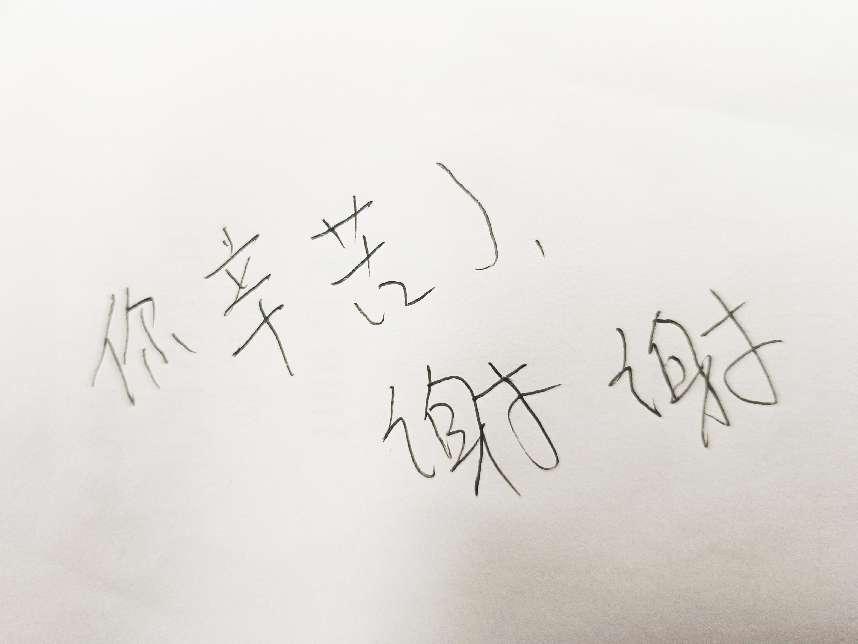 你辛苦了、
谢谢